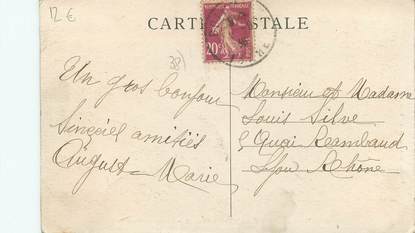 12 €
CARTE POSTALE
20c
38)
Un gros bonjour
Sincères amitiés
August Marie
Monsieur et Madame
Louis Silve
5 Quai Rambaud
Lyon Rhône